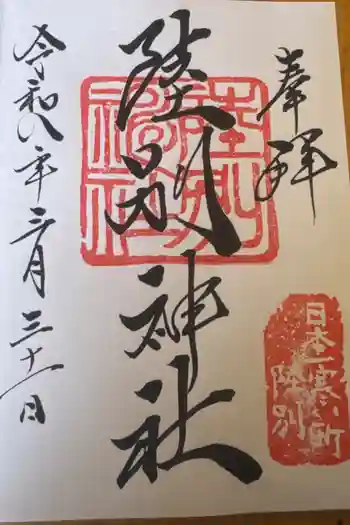 奉拝
日本一寒い町
陸別
陸別神社
令和八年三月三十一日